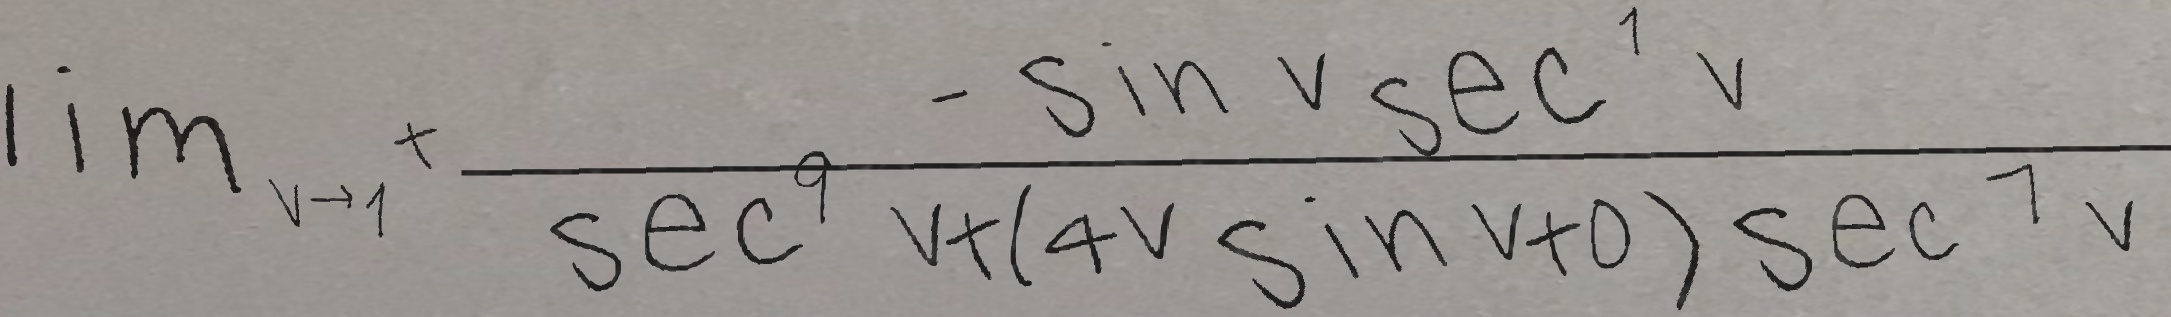 \lim_{v \to 1^+} \frac{-\sin v \sec^1 v}{\sec^9 v + (4v \sin v + 0) \sec^7 v}